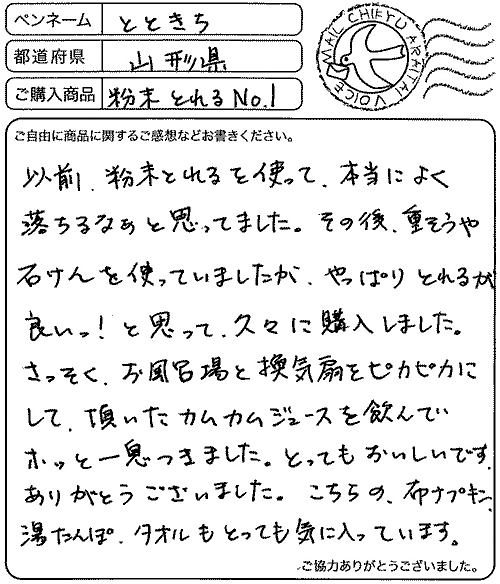 ペンネーム とときち
都道府県 山形県
ご購入商品 粉末とれるNo.1
MAIL CHIEYU ARAITAI VOICE
ご自由に商品に関するご感想などお書きください。
以前、粉末とれるを使って、本当によく
落ちるなぁと思ってました。その後、重そうや
石けんを使っていましたが、やっぱりとれるが
良いっ!と思って、久々に購入しました。
さっそく、お風呂場と換気扇をピカピカに
して、頂いたカムカムジュースを飲んで
ホッと一息つきました。とってもおいしいです。
ありがとうございました。こちらの、布ナプキン、
湯たんぽ、タオルもとっても気に入っています。
ご協力ありがとうございました。